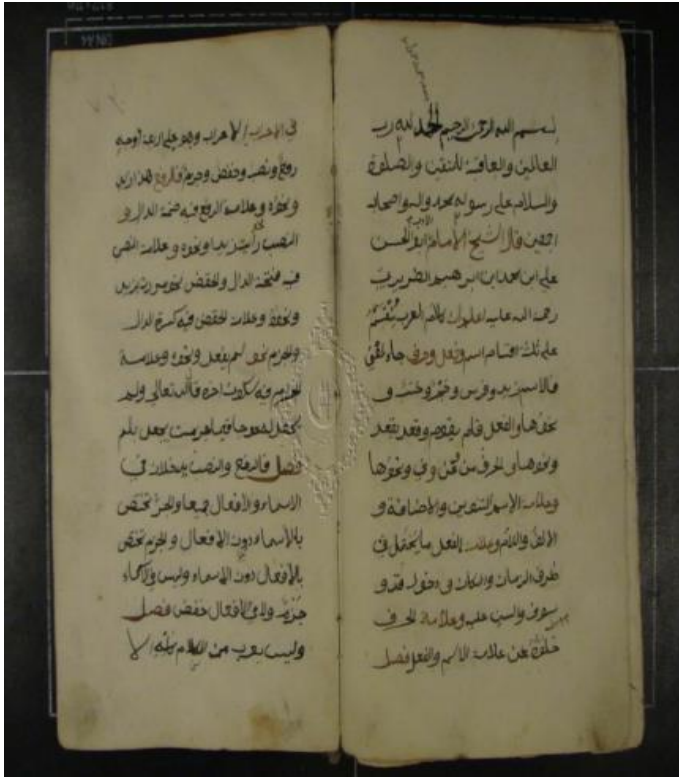 بسم الله الرحمن الرحيم الحمد لله رب
العالمين والعاقبة للمتقين والصلوة
والسلام على رسوله محمد واله واصحابه
اجمعين قال الشيخ الامام ابو الحسن
على ابن محمد ابن ابرهيم الضرير
رحمة الله عليه اعلم ان كلام العرب ينقسم
على ثلثة اقسام اسم وفعل وحرف جاء لمعنى
فالاسم زيد وفرس و
نحوها والفعل قام يقوم وقعد يقعد
ونحوها والحرف من وعن وفى ونحوها
وعلامة الاسم التنوين والاضافة و
الالف واللام وعلامة الفعل ما يحتمل فى
ظرف الزمان والمكان ودخول قد و
سوف والسين عليه وعلامة الحرف
خلوه عن علامة الاسم والفعل فصل
فى الاعراب الاعراب وهو على اربعة اوجه
رفع ونصب وخفض وجزم فالرفع هذا زيد
ونحوه وعلامة الرفع فيه ضمة الدال و
النصب رايت زيدا ونحوه وعلامة النصب
فيه فتحة الدال والخفض نحو مررت بزيد
ونحوه وعلامة الخفض فيه كسرة الدال
والجزم نحو لم يفعل ونحوه وعلامة
الجزم فيه سكون اخره قال الله تعالى ولم
يجعل له عوجا قيما جزمت يجعل بلم
فصل فالرفع والنصب يدخلان فى
الاسماء والافعال جميعا والجر تختص
بالاسماء دون الافعال والجزم تختص
بالافعال دون الاسماء وليس فى الاسماء
جزم ولا فى الافعال خفض فصل
وليس يعرب من الكلام كله الا